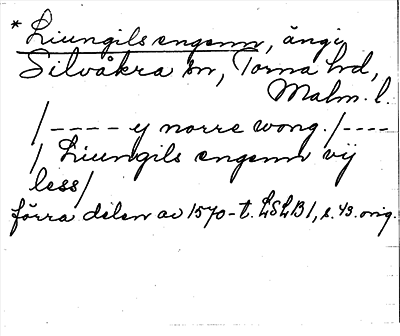 * Liungils engenn, äng i
Silvåkra sn, Torna hd,
Malm. l.
/---- y norre wong. /----
/ Liungils engenn vij
less/
förra delen av 1570-t. LSLB 1, s. 43. orig.